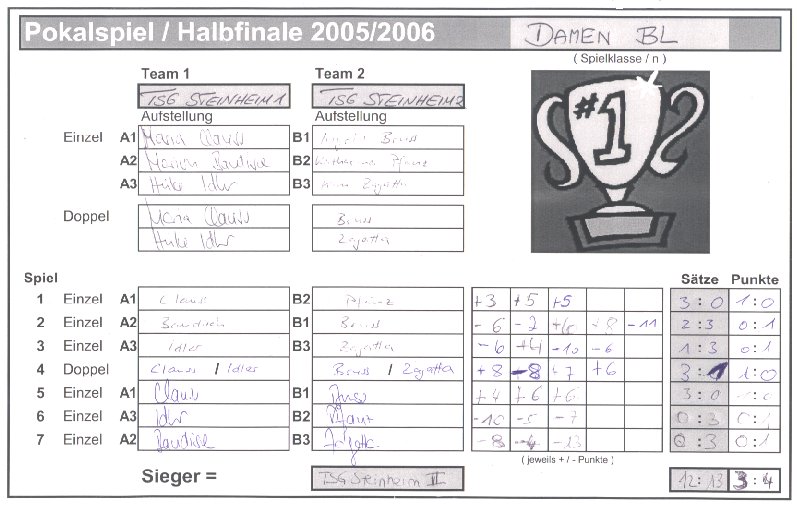 Pokalspiel / Halbfinale 2005/2006 DAMEN BL
( Spielklasse / n )
Team 1 Team 2
TSG STEINHEIM 1 TSG STEINHEIM 2
Aufstellung Aufstellung
#1
Einzel A1 Maria Clauss B1 Bruss
A2 B2
A3 Heike Idler B3 Zagatta
Doppel Maria Clauss Bruss
Heike Idler Zagatta
Spiel Sätze Punkte
1 Einzel A1 Clauss B2 +3 +5 +5 3 : 0 1 : 0
2 Einzel A2 B1 Bruss -6 -2 +6 +8 -11 2 : 3 0 : 1
3 Einzel A3 Idler B3 Zagatta -6 +4 -10 -6 1 : 3 0 : 1
4 Doppel Clauss / Idler Bruss / Zagatta +8 -8 +7 +6 3 : 1 1 : 0
5 Einzel A1 Clauss B1 Bruss +4 +6 +6 3 : 0 1 : 0
6 Einzel A3 Idler B2 -10 -5 -7 0 : 3 0 : 1
7 Einzel A2 B3 -8 -4 -13 0 : 3 0 : 1
( jeweils + / - Punkte )
Sieger = TSG Steinheim II 12 : 13 3 : 4